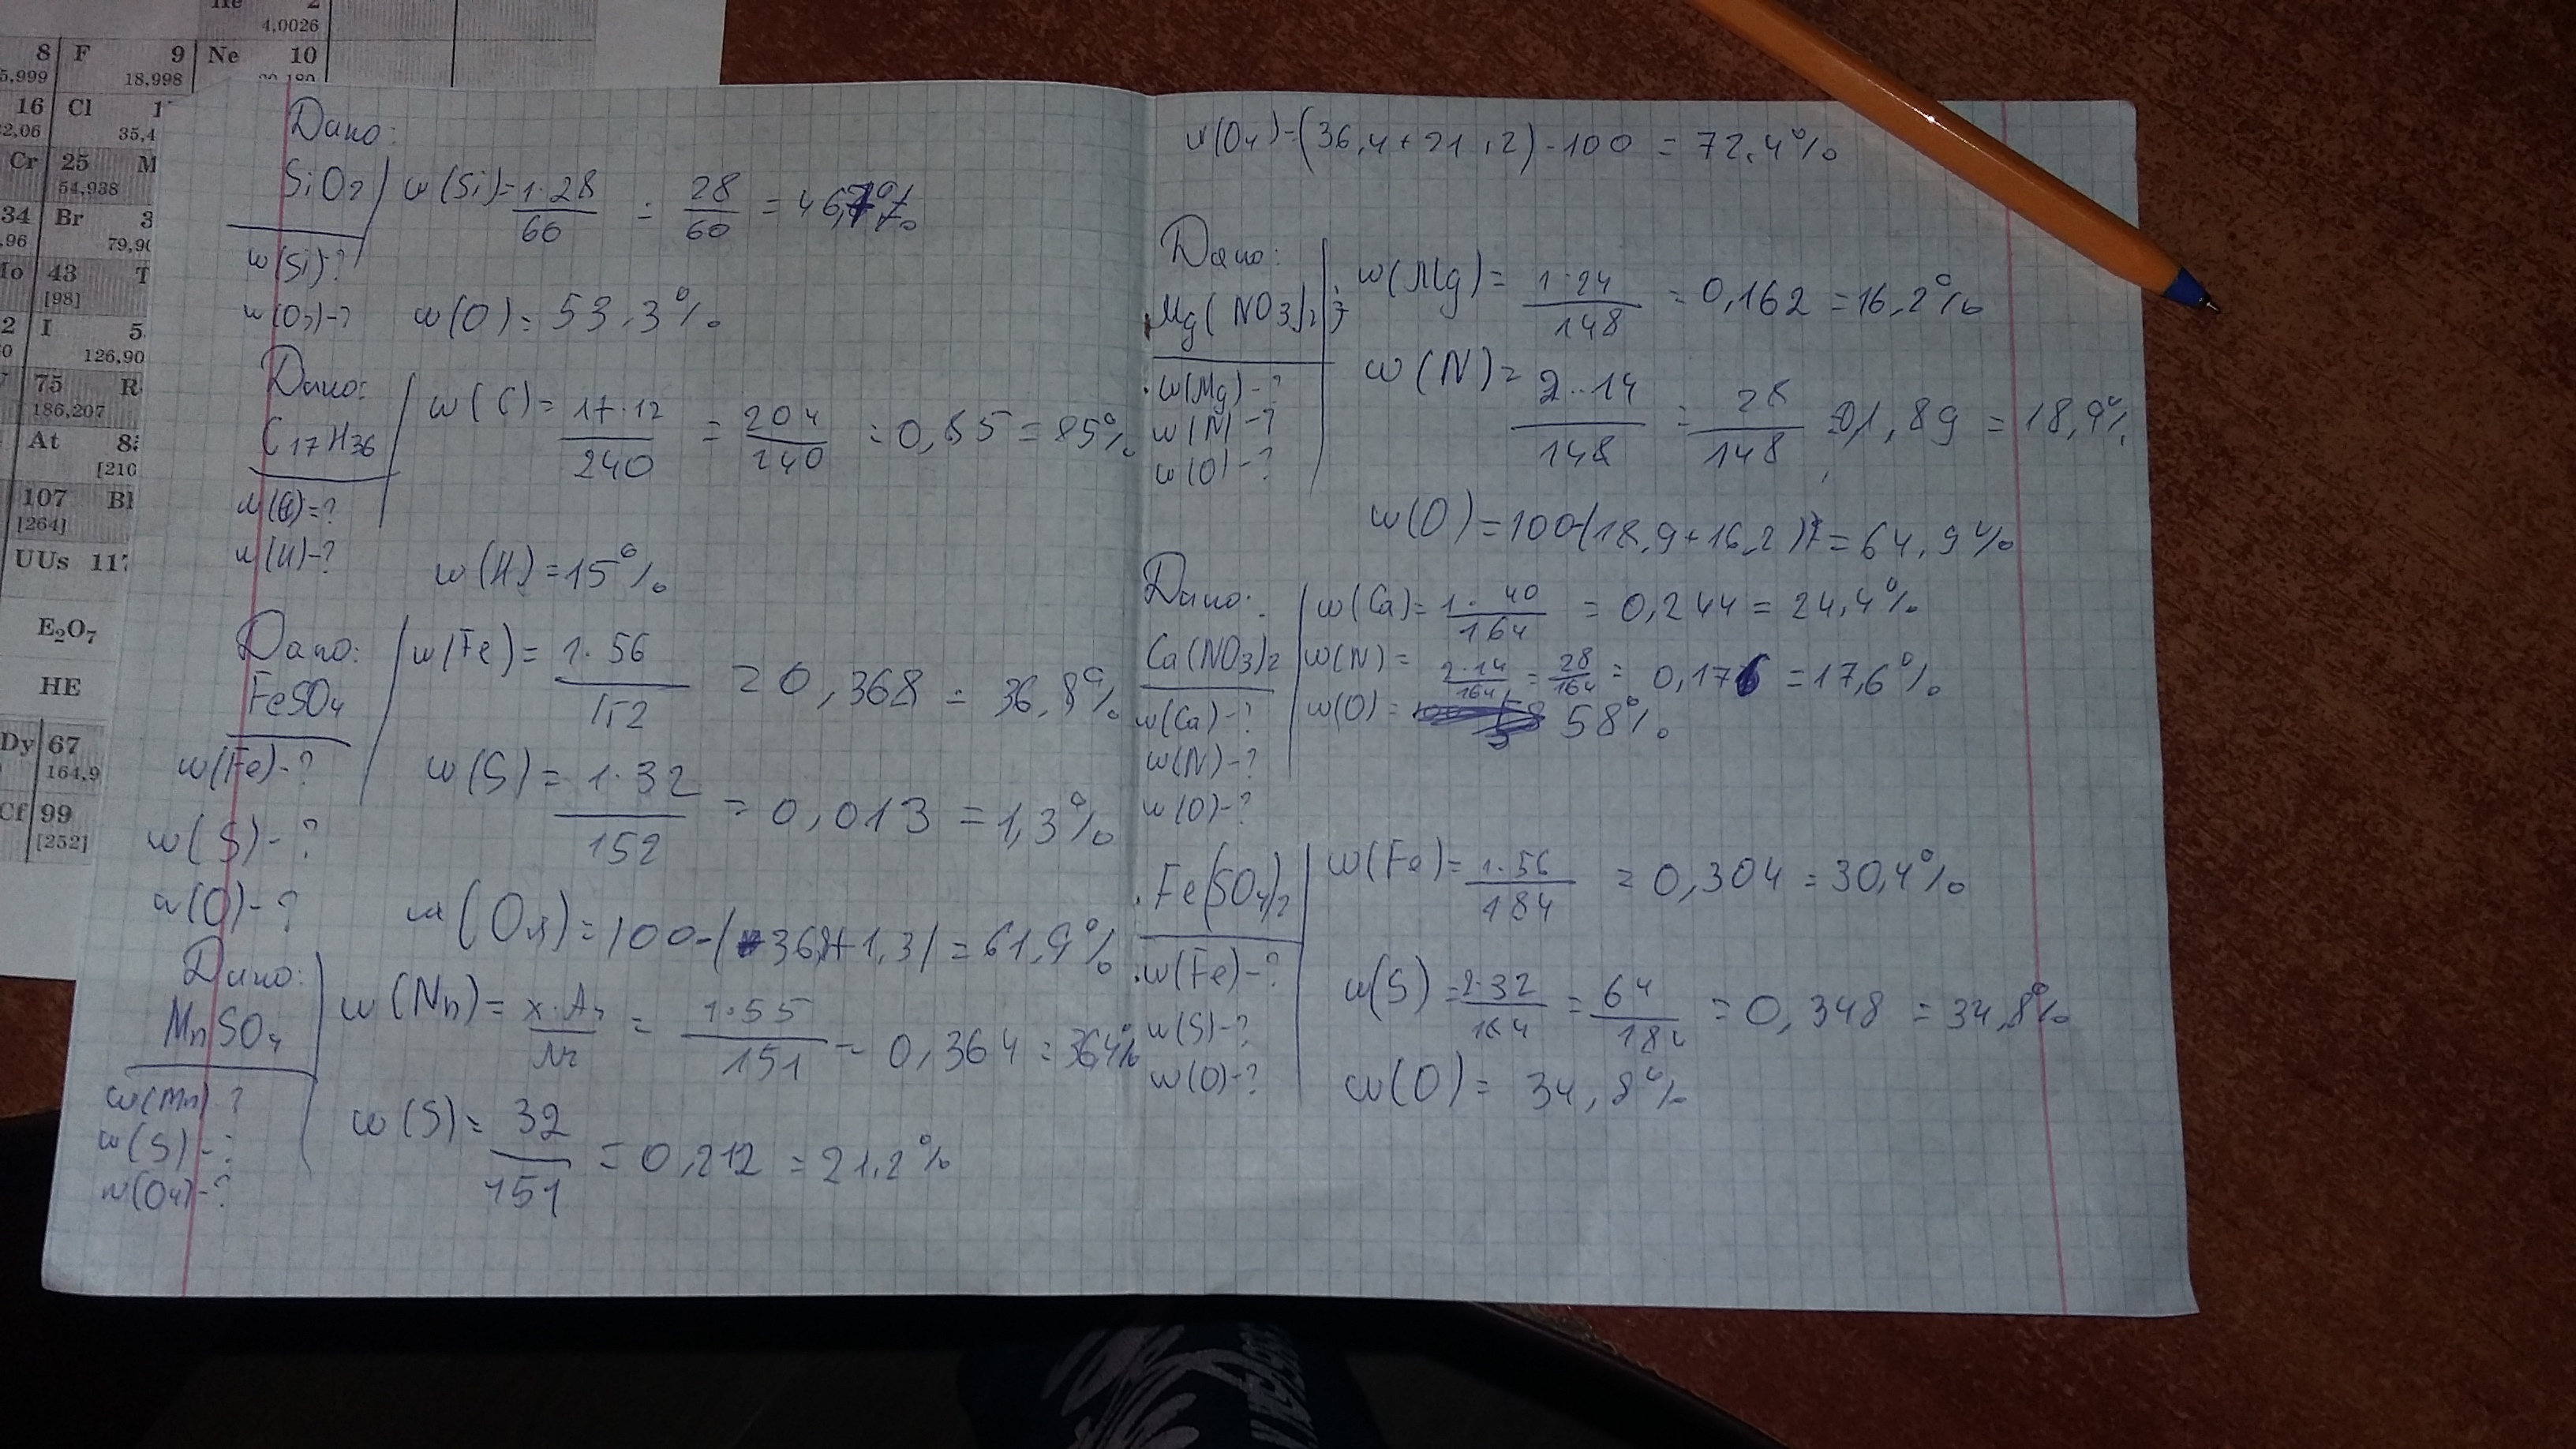 He 2
4,0026
8 F 9 Ne 10
5,999 18,998 20,180
16 Cl 1
2,06 35,4
Cr 25 M
54,938
34 Br 3
,96 79,90
Mo 43 T
[98]
2 I 5
0 126,90
75 R
186,207
At 85
[210
107 Bh
[264]
UUs 117
E₂O₇
HE
Dy 67
164,9
Cf 99
[252]
Дано:
SiO₂ w(Si)=1·28/60 = 28/60 = 46,7%
w(Si)-?
w(O₂)-? w(O)= 53,3%
Дано:
C₁₇H₃₆ w(C)= 17·12/240 = 204/240 = 0,85 = 85%
w(C)=?
w(H)-? w(H)=15%
Дано:
FeSO₄ w(Fe)= 1·56/152 = 0,368 = 36,8%
w(Fe)-? w(S)= 1·32/152 = 0,013 = 1,3%
w(S)-?
w(O)-? w(O₄)=100-(36,8+1,3)=61,9%
Дано:
MnSO₄ w(Mn)= x·Ar/Mr = 1·55/151 = 0,364 = 36,4%
w(Mn)-?
w(S)-? w(S)= 32/151 = 0,212 = 21,2%
w(O₄)-?
w(O₄)-(36,4+21,2)-100 = 72,4%
Дано:
Mg(NO₃)₂ w(Mg)= 1·24/148 = 0,162 = 16,2%
w(Mg)-? w(N)= 2·14/148 = 28/148 = 0,189 = 18,9%
w(N)-?
w(O)-?
w(O)=100-(18,9+16,2)=64,9%
Дано:
Ca(NO₃)₂ w(Ca)= 1·40/164 = 0,244 = 24,4%
w(N)= 2·14/164 = 28/164 = 0,176 = 17,6%
w(Ca)-? w(O)= 58%
w(N)-?
w(O)-?
Fe(SO₄)₂ w(Fe)= 1·56/184 = 0,304 = 30,4%
w(Fe)-?
w(S)-? w(S)= 2·32/184 = 64/184 = 0,348 = 34,8%
w(O)-? w(O)= 34,8%